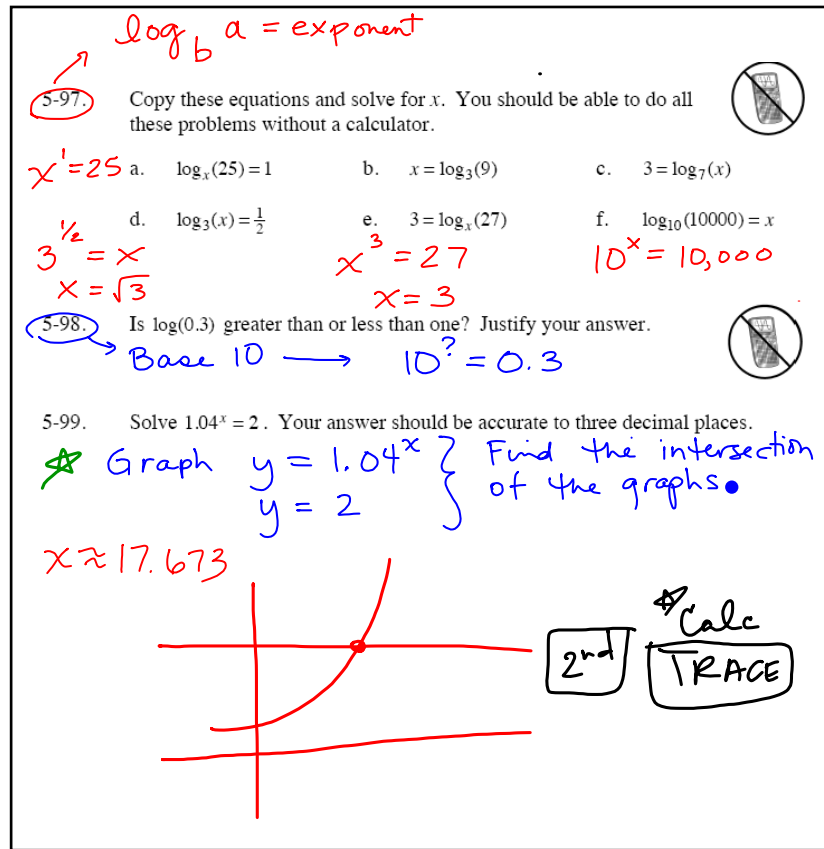 log_b a = exponent
5-97. Copy these equations and solve for x. You should be able to do all
these problems without a calculator.
x^1 = 25 a. log_x(25) = 1 b. x = log_3(9) c. 3 = log_7(x)
d. log_3(x) = 1/2 e. 3 = log_x(27) f. log_10(10000) = x
3^1/2 = x x^3 = 27 10^x = 10,000
x = √3 x = 3
5-98. Is log(0.3) greater than or less than one? Justify your answer.
Base 10 → 10^? = 0.3
5-99. Solve 1.04^x = 2. Your answer should be accurate to three decimal places.
☆ Graph y = 1.04^x } Find the intersection
y = 2 of the graphs.
x ≈ 17.673
☆ Calc
2nd TRACE